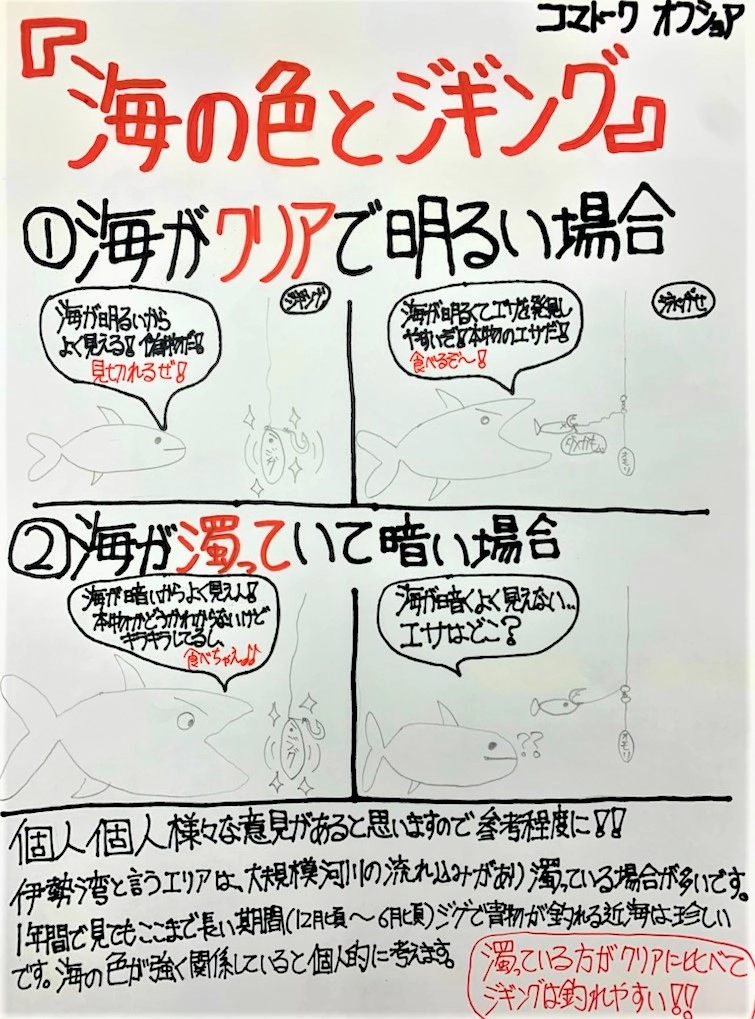 コマトーク オフショア
『海の色とジギング』
①海がクリアで明るい場合
海が明るいから
よく見える!偽物だ!
見切れるぜ!
ジギング
ジグ
海が明るくてエサを発見し
やすいぞ!本物のエサだ!
食べるぞ〜!
泳がせ
ダメかも。
オモリ
②海が濁っていて暗い場合
海が暗いからよく見えん!
本物かどうかわからないけど
キラキラしてるし、
食べちゃえ♪♪
ジグ
海が暗くよく見えない..
エサはどこ?
??
オモリ
個人個人様々な意見があると思いますので参考程度に!!
伊勢湾と言うエリアは、大規模河川の流れ込みがあり濁っている場合が多いです。
1年間で見てもここまで長い期間(12月頃〜6月頃)ジグで青物が釣れる近海は珍しい
です。海の色が強く関係していると個人的に考えます。
濁っている方がクリアに比べて
ジギングは釣れやすい!!